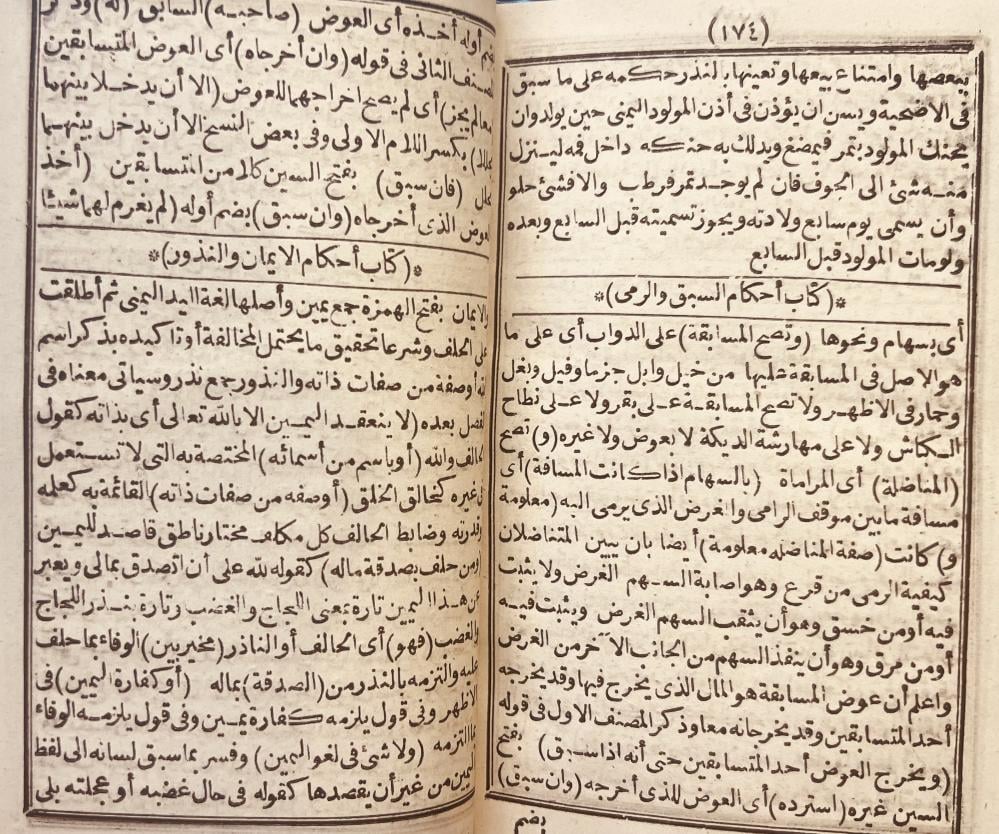 (١٧٤)
ببعضها وامتناع بيعها وتعينها بالنذر حكمه على ما سبق
فى الاضحية ويسن ان يؤذن فى أذن المولود اليمنى حين يولد وان
يحنك المولود بتمر فيمضغ ويدلك به حنكه داخل فمه لينزل
منه شئ الى الجوف فان لم يوجد تمر فرطب والا فشئ حلو
وأن يسمى يوم سابع ولادته ويجوز تسميته قبل السابع وبعده
ولو مات المولود قبل السابع
*(كتاب أحكام السبق والرمى)*
أى بسهام ونحوها (وتصح المسابقة) على الدواب أى على ما
هو الاصل فى المسابقة عليها من خيل وابل جزما وفيل وبغل
وحمار فى الاظهر ولا تصح المسابقة على بقر ولا على نطاح
الكباش ولا على مهارشة الديكة لا بعوض ولا غيره (و) تصح
(المناضلة) أى المراماة (بالسهام اذا كانت المسافة) أى
مسافة ما بين موقف الرامى والغرض الذى يرمى اليه (معلومة
و) كانت (صفة المناضله معلومة) أيضا بان يبين المتناضلان
كيفية الرمى من قرع وهو اصابة السهم الغرض ولا يثبت
فيه أو من خسق وهو أن يثقب السهم الغرض ويثبت فيه
أو من مرق وهو أن ينفذ السهم من الجانب الآخر من الغرض
واعلم أن عوض المسابقة هو المال الذى يخرج فيها وقد يخرجه
أحد المتسابقين وقد يخرجانه معا وذكر المصنف الاول فى قوله
(ويخرج العوض أحد المتسابقين حتى أنه اذا سبق) بفتح
السين غيره (استرده) أى العوض للذى أخرجه (وان سبق)
بضم
بضم أوله أخذه أى العوض (صاحبه) السابق (له) وذكر
المصنف الثانى فى قوله (وان أخرجاه) أى العوض المتسابقين
معا لم يجز) أى لم يصح اخراجهما للعوض (الا أن يدخلا بينهما
محللا) بكسر اللام الاولى وفى بعض النسخ الا أن يدخل بينهما
محلل (فان سبق) بفتح السين كلا من المتسابقين (أخذ
العوض الذى أخرجاه (وان سبق) بضم أوله (لم يغرم لهما شيئا
*(كتاب أحكام الايمان والنذور)*
والايمان بفتح الهمزة جمع يمين وأصلها لغة اليد اليمنى ثم أطلقت
على الحلف وشرعا تحقيق ما يحتمل المخالفة أو تاكيده بذكر اسم
الله أو صفة من صفات ذاته والنذور جمع نذر وسياتى معناه فى
الفصل بعده (لا ينعقد اليمين الا بالله تعالى أى بذاته كقول
الحالف والله (أو باسم من أسمائه) المختصة به التى لا تستعمل
فى غيره كخالق الخلق (أو صفه من صفات ذاته) القائمة به كعلمه
وقدرته وضابط الحالف كل مكلف مختار ناطق قاصد لليمين
(ومن حلف بصدقة ماله) كقوله لله على أن اتصدق بمالى ويعبر
عن هذا اليمين تارة بمعنى اللجاج والغضب وتارة بنذر اللجاج
والغضب (فهو) أى الحالف أو الناذر (مخير بين) الوفاء بما حلف
عليه والتزمه بالنذر من (الصدقة) بماله (أو كفارة اليمين) فى
الاظهر وفى قول يلزمه كفارة يمين وفى قول يلزمه الوفاء
بما التزمه (ولا شئ فى لغو اليمين) وفسر بما سبق لسانه الى لفظ
اليمين من غير أن يقصدها كقوله فى حال غضبه أو عجلته بلى